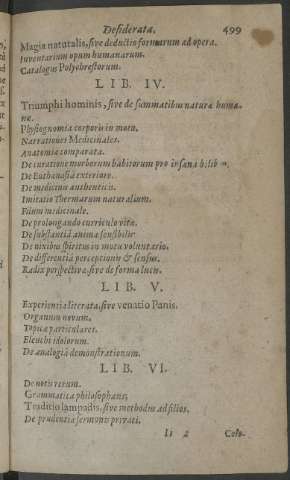 Desiderata. 499
Magia naturalis, sive deductio formarum ad opera.
Inventarium opum humanarum.
Catalogus Polychrestorum.
LIB. IV.
Triumphi hominis, sive de summitatibus naturæ huma-
næ.
Physiognomia corporis in motu.
Narrationes Medicinales.
Anatomia comparata.
De curatione morborum habitorum pro insanabilibus.
De Euthanasia exteriore.
De medicinis authenticis.
Imitatio Thermarum naturalium.
Filum medicinale.
De prolongando curriculo vitæ.
De substantiâ animæ sensibilis.
De nixibus spiritus in motu voluntario.
De differentiâ perceptionis & sensus.
Radix perspectivæ, sive de forma lucis.
LIB. V.
Experientia literata, sive venatio Panis.
Organum novum.
Topicæ particulares.
Elenchi idolorum.
De analogiâ demonstrationum.
LIB. VI.
De notis rerum.
Grammatica philosophans.
Traditio lampadis, sive methodus ad filios.
De prudentia sermonis privati.
Ii 2 Colo-